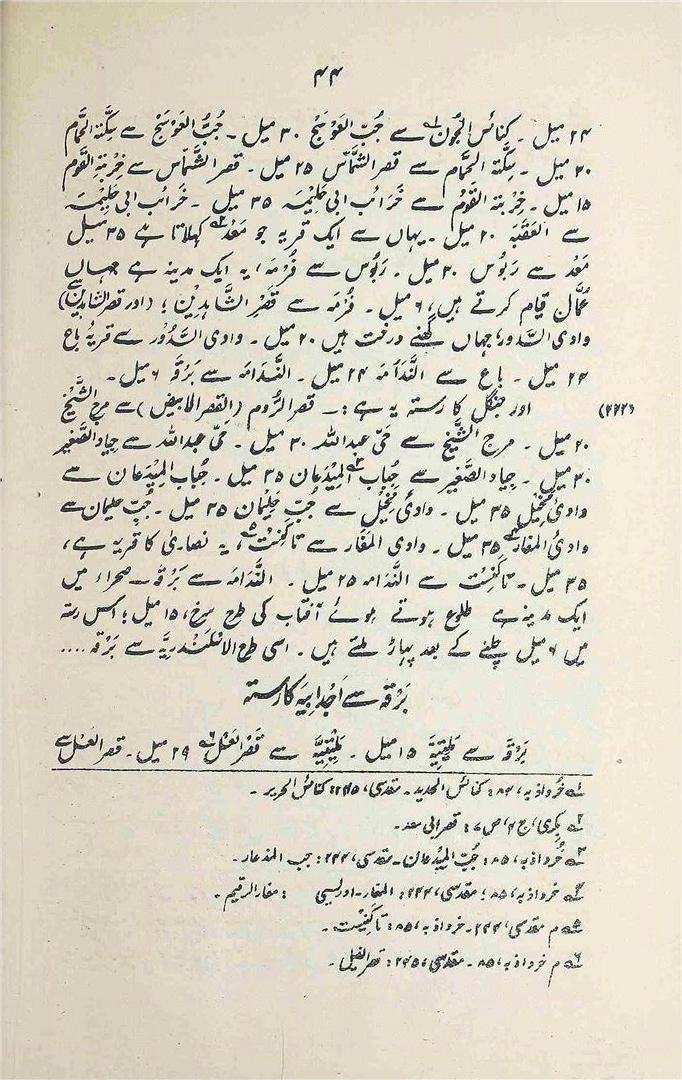 ۴۴
۲۴ میل ۔ کنائس الجُون۱ سے جُبّ العَوسَج ۳۰ میل ۔ جُبُّ العَوسَج سے سِکّۃ الحَمّام
۲۰ میل ۔ سِکّۃ الحَمّام سے قصر الشَّمّاس ۲۵ میل ۔ قصر الشَّمّاس سے خِربۃ القَوم
۱۵ میل ۔ خِربۃ القَوم سے خَرَائب ابی حَلِیمہ ۳۵ میل ۔ خَرَائب ابی حَلِیمہ
سے العَقَبَہ ۲۰ میل ۔ یہاں سے ایک قریہ جو مَعْد۲ کہلاتا ہے ۳۵ میل
مَعْد سے رَبُوس ۳۰ میل ۔ رَبُوس سے فُرْمَہ، یہ ایک مدینہ ہے جہاں
عُمّال قیام کرتے ہیں، ۶ میل ۔ فُرْمہ سے قَصْر الشَّاہِدِیْن؛ (اور قصر الشاہدین سے)
وادی السَّدور، جہاں گھنے درخت ہیں ۲۰ میل ۔ وادی السَّدُوْر سے قریۂ باع
۲۴ میل ۔ باع سے النَّدَامہ ۲۴ میل ۔ النَّدَامہ سے بَرْقَہ ۶ میل ۔
(۲۲۲) اور جنگل کا رستہ یہ ہے :۔ قصر الرُّوم (القصر الابیض) سے مرج الشَّیْخ
۲۰ میل ۔ مرج الشَّیْخ سے حَیّ عبداللہ ۳۰ میل ۔ حَیّ عبداللہ سے جیاد الصَّغیر
۳۰ میل ۔ جیاد الصَّغیر سے جِبَاب۳ المِیْدَعان ۲۵ میل ۔ جُبَاب المِیْدَعان سے
وادئ مَخِیْل ۳۵ میل ۔ وادئ مَخِیْل سے جُبّ حَلِیمان ۳۵ میل ۔ جُبّ حلیمان سے
وادئ المَغَار۴ ۳۵ میل ۔ وادی المَغَار سے تاکَنِسْت۵، یہ نصاریٰ کا قریہ ہے،
۳۵ میل ۔ تاکَنِسْت سے النَّدامہ ۲۵ میل ۔ النَّدَامَہ سے بَرْقَہ ــ صحراء میں
ایک مدینہ ہے طلوع ہوتے ہوئے آفتاب کی طرح سرخ، ۱۵ میل؛ اس رستہ
میں ۶ میل چلنے کے بعد پہاڑ ملتے ہیں ۔ اسی طرح الاسکندریّہ سے بَرْقہ ....
بَرْقہ سے اَجْدَابِیَہ کا رستہ
بَرْقَہ سے مَلِیْتِیَّہ ۱۵ میل ۔ مَلِیْتِیَّہ سے قَصْر العَسَل۶ ۲۹ میل ۔ قصر العَسَل سے
۱؎ خُرداذبہ، ۸۴: کنائس الحدید ۔ مقدسی، ۲۴۵: کنائس الحریر ۔
۲؎ بکری، ج ۲، ص ۷: قصر ابی سعد ۔
۳؎ خُرداذبہ، ۸۵: جُبّ المِیْدَعان ۔ مقدسی، ۲۴۴: جب المذعار ۔
۴؎ خرداذبہ، ۸۵؛ مقدسی، ۲۴۴: المغار ۔ ادریسی : مغار الرقیم ۔
۵؎ م مقدسی، ۲۴۴ ۔ خرداذبہ، ۸۵: تاکَنِیْسْت ۔
۶؎ م خرداذبہ، ۸۵ ۔ مقدسی، ۲۴۵: قصر الفیل ۔